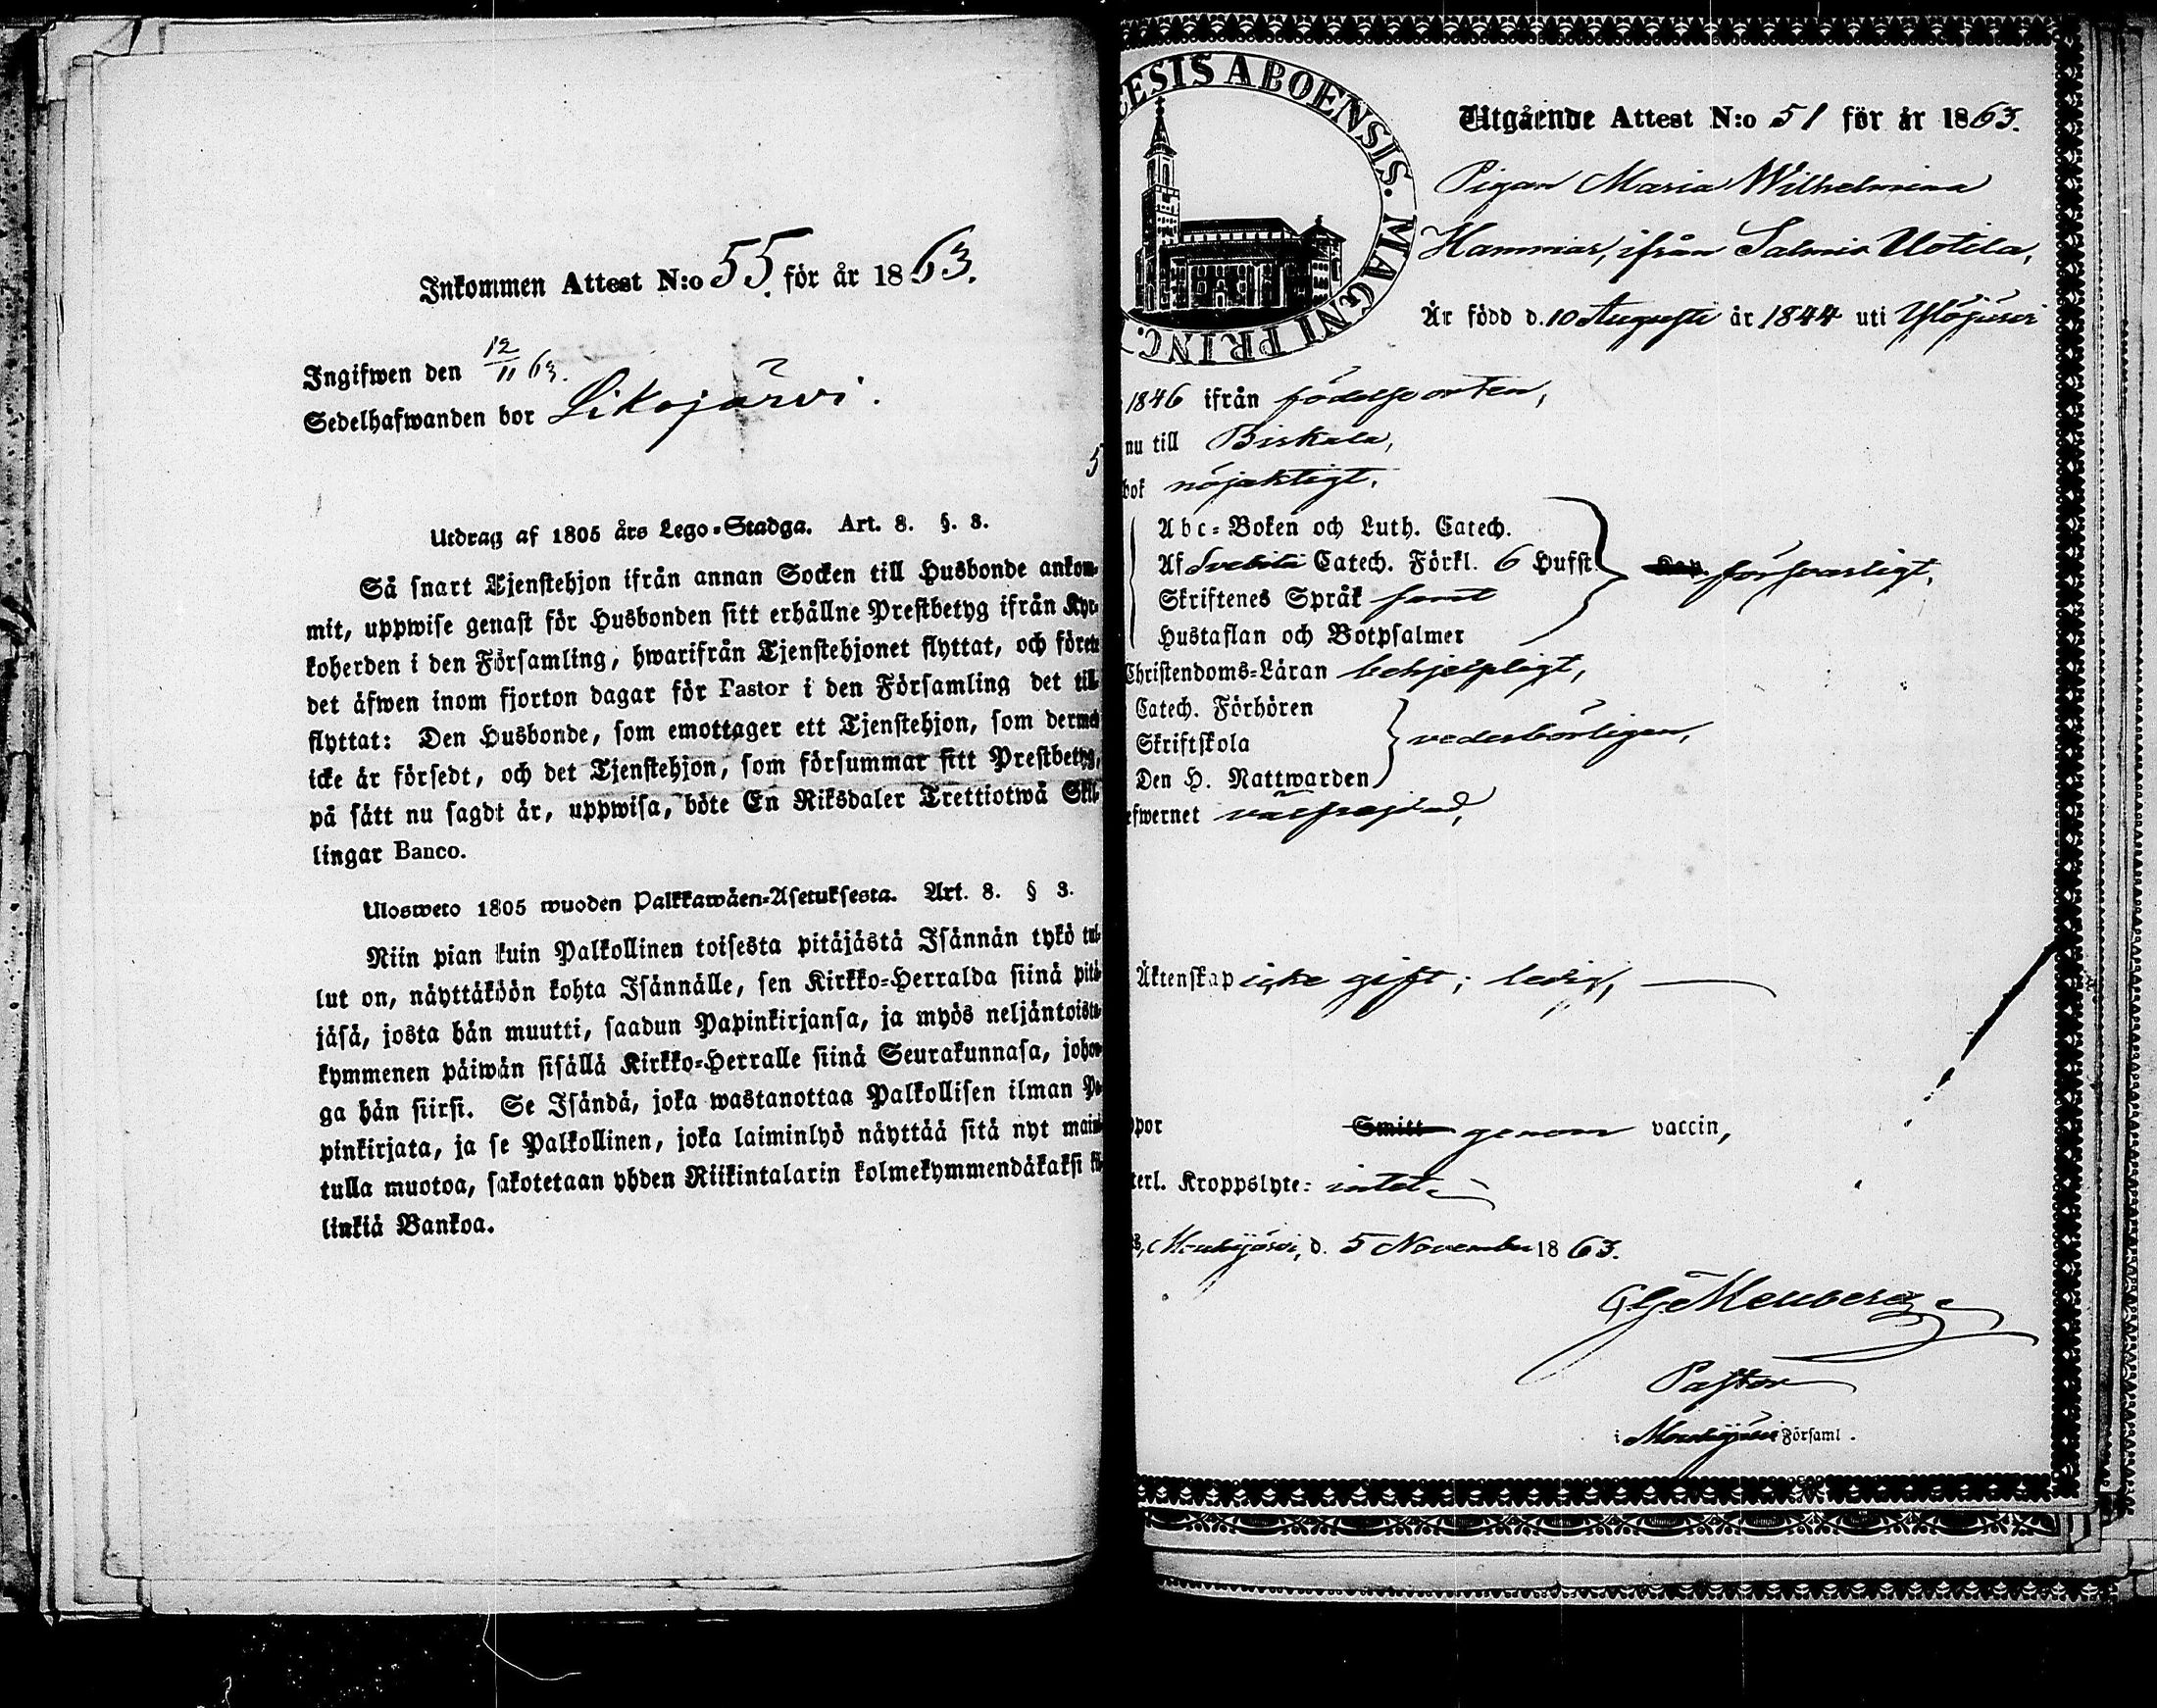 Inkommen Attest N:o 55. för år 1863.
Ingifwen den 12/11 63.
Sedelhafwanden bor Likojärvi.
5
Utdrag af 1805 års Lego-Stadga. Art. 8. §. 3.
Så snart Tjenstehjon ifrån annan Socken till Husbonde ankom-
mit, uppwise genast för Husbonden sitt erhållne Prestbetyg ifrån Kyr-
koherden i den Församling, hwarifrån Tjenstehjonet flyttat, och förete
det äfwen inom fjorton dagar för Pastor i den Församling det till
flyttat: Den Husbonde, som emottager ett Tjenstehjon, som dermed
icke är försedt, och det Tjenstehjon, som försummar sitt Prestbetyg,
på sätt nu sagdt är, uppwisa, böte En Riksdaler Trettiotwå Skil-
lingar Banco.
Ulosweto 1805 wuoden Palkkawäen-Asetuksesta. Art. 8. § 3.
Niin pian kuin Palkollinen toisesta pitäjästä Isännän tykö tul-
lut on, näyttäköön kohta Isännälle, sen Kirkko-Herralda siinä pitä-
jäsä, josta hän muutti, saadun Papinkirjansa, ja myös neljäntoista-
kymmenen päiwän sisällä Kirkko-Herralle siinä Seurakunnasa, johon-
ga hän siirsi. Se Isändä, joka wastanottaa Palkollisen ilman Pa-
pinkirjata, ja se Palkollinen, joka laiminlyö näyttää sitä nyt maini-
tulla muotoa, sakotetaan yhden Riikintalarin kolmekymmendäkaksi ki-
linkiä Bankoa.
ESIS ABOENSIS. MAGNI PRINC.
Utgående Attest N:o 51 för år 1863.
Pigan Maria Wilhelmina
Hammar, ifrån Salmis Uotila,
Är född d. 10 Augusti år 1844 uti Ylöjärvi
1846 ifrån födelseorten,
nu till Birkala,
bok nöjaktigt.
Abc-Boken och Luth. Catech.
Af Svebilii Catech. Förkl. 6 Hufst. försvarligt,
Skriftenes Språk samt
Hustaflan och Botpsalmer
Christendoms-Läran behjelpligt,
Catech. Förhören
Skriftskola vederbörligen,
Den H. Nattwarden
efwernet välfrejdad,
Äktenskap icke gift; ledig,
ppor Smitt genom vaccin,
terl. Kroppslyte: intet.
s, Mouhijärvi, d. 5 November 1863.
Pastor
i Mouhijärvi Församl.